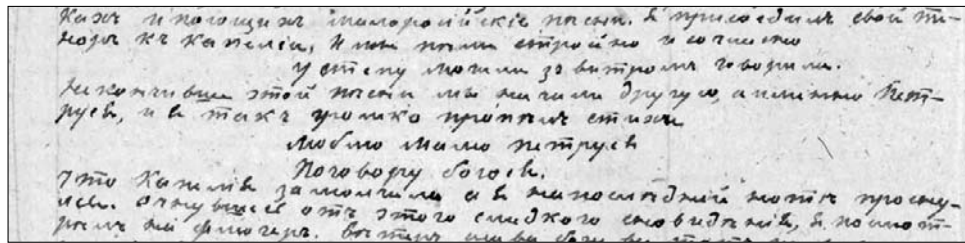 кахъ и поющихъ малороссійскіе песни. Я присоедилъ свой те-
норъ къ капеліи, И мы пели стройно и согласно
у степу могила зъ витромъ говорила.
Некончивши этой песни мы начали другую, а именно Пет-
руся, и я такъ громко пропелъ стихи
люблю мамо петруся
Поговору боюся.
Что Капеля замолчала а я напоследней ноте просну-
лся. Очнувшися отъ этого сладкого сновиденія, я посмот-
релъ на флюгеръ. Ветеръ